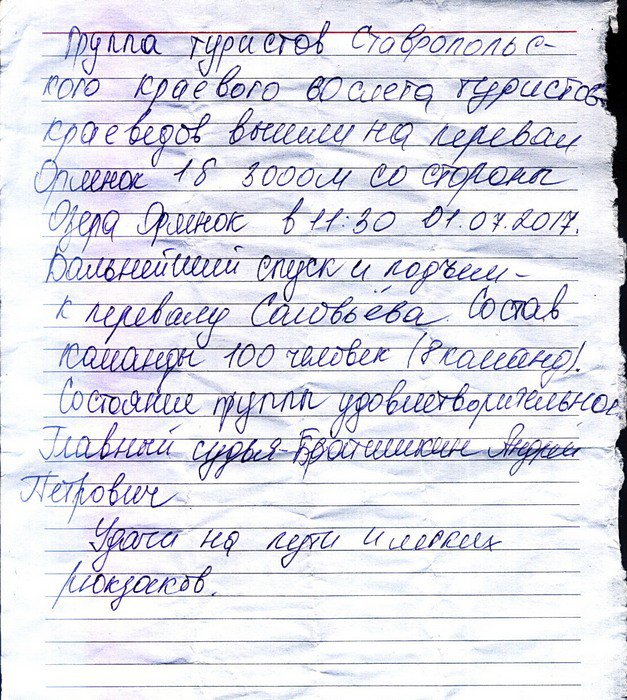 Группа туристов Ставропольс-
кого краевого 60 слета туристов
краеведов вышли на перевал
Орленок 1б 3000м со стороны
Озера Орленок в 11:30 01.07.2017.
Дальнейший спуск и подъем -
к перевалу Соловьёва. Состав
команды 100 человек (8 команд).
Состояние группы удовлетворительное
Главный судья - Братчиккин Андрей
Петрович
Удачи на пути и легких
рюкзаков.